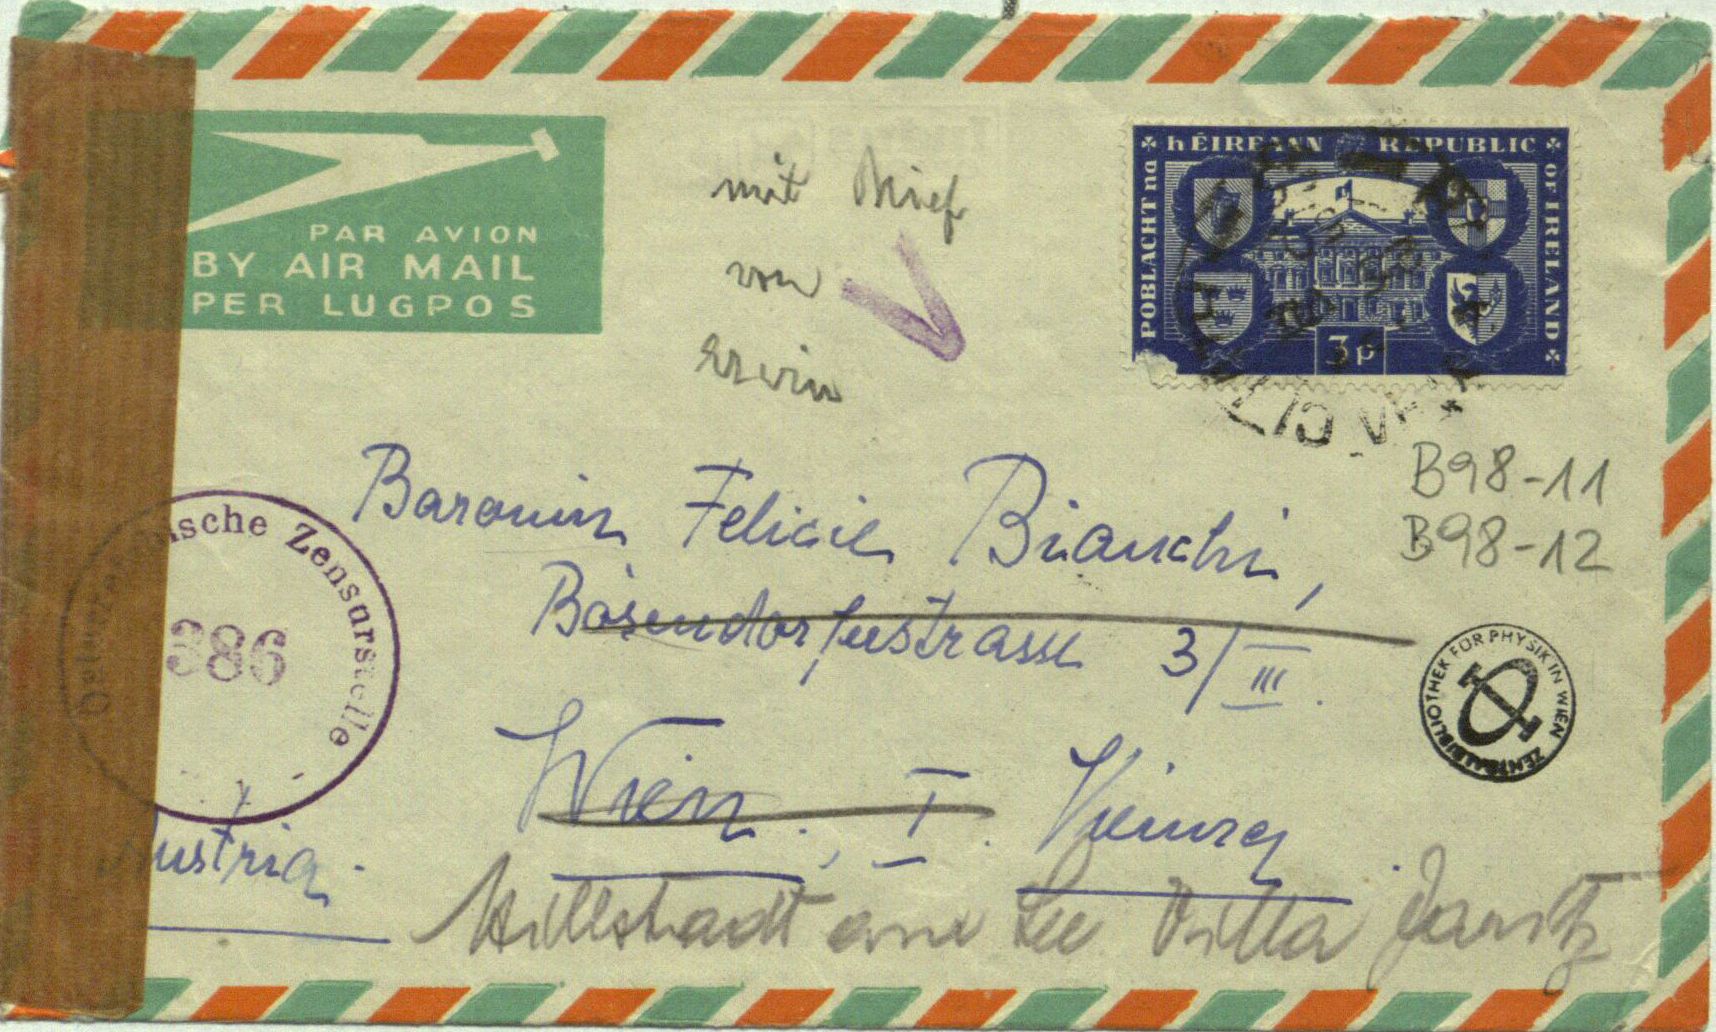 PAR AVION
BY AIR MAIL
PER LUGPOS
mit Brief
von
Erwin
hÉIREANN REPUBLIC
POBLACHT na
OF IRELAND
3p
B98-11
B98-12
Baronin Felicie Bianchi,
Bösendorferstrasse 3/III.
Wien, I. Vienna.
Austria.
Millstadt am See Villa
ische Zensurstelle
386
ZENTRALBIBLIOTHEK FÜR PHYSIK IN WIEN